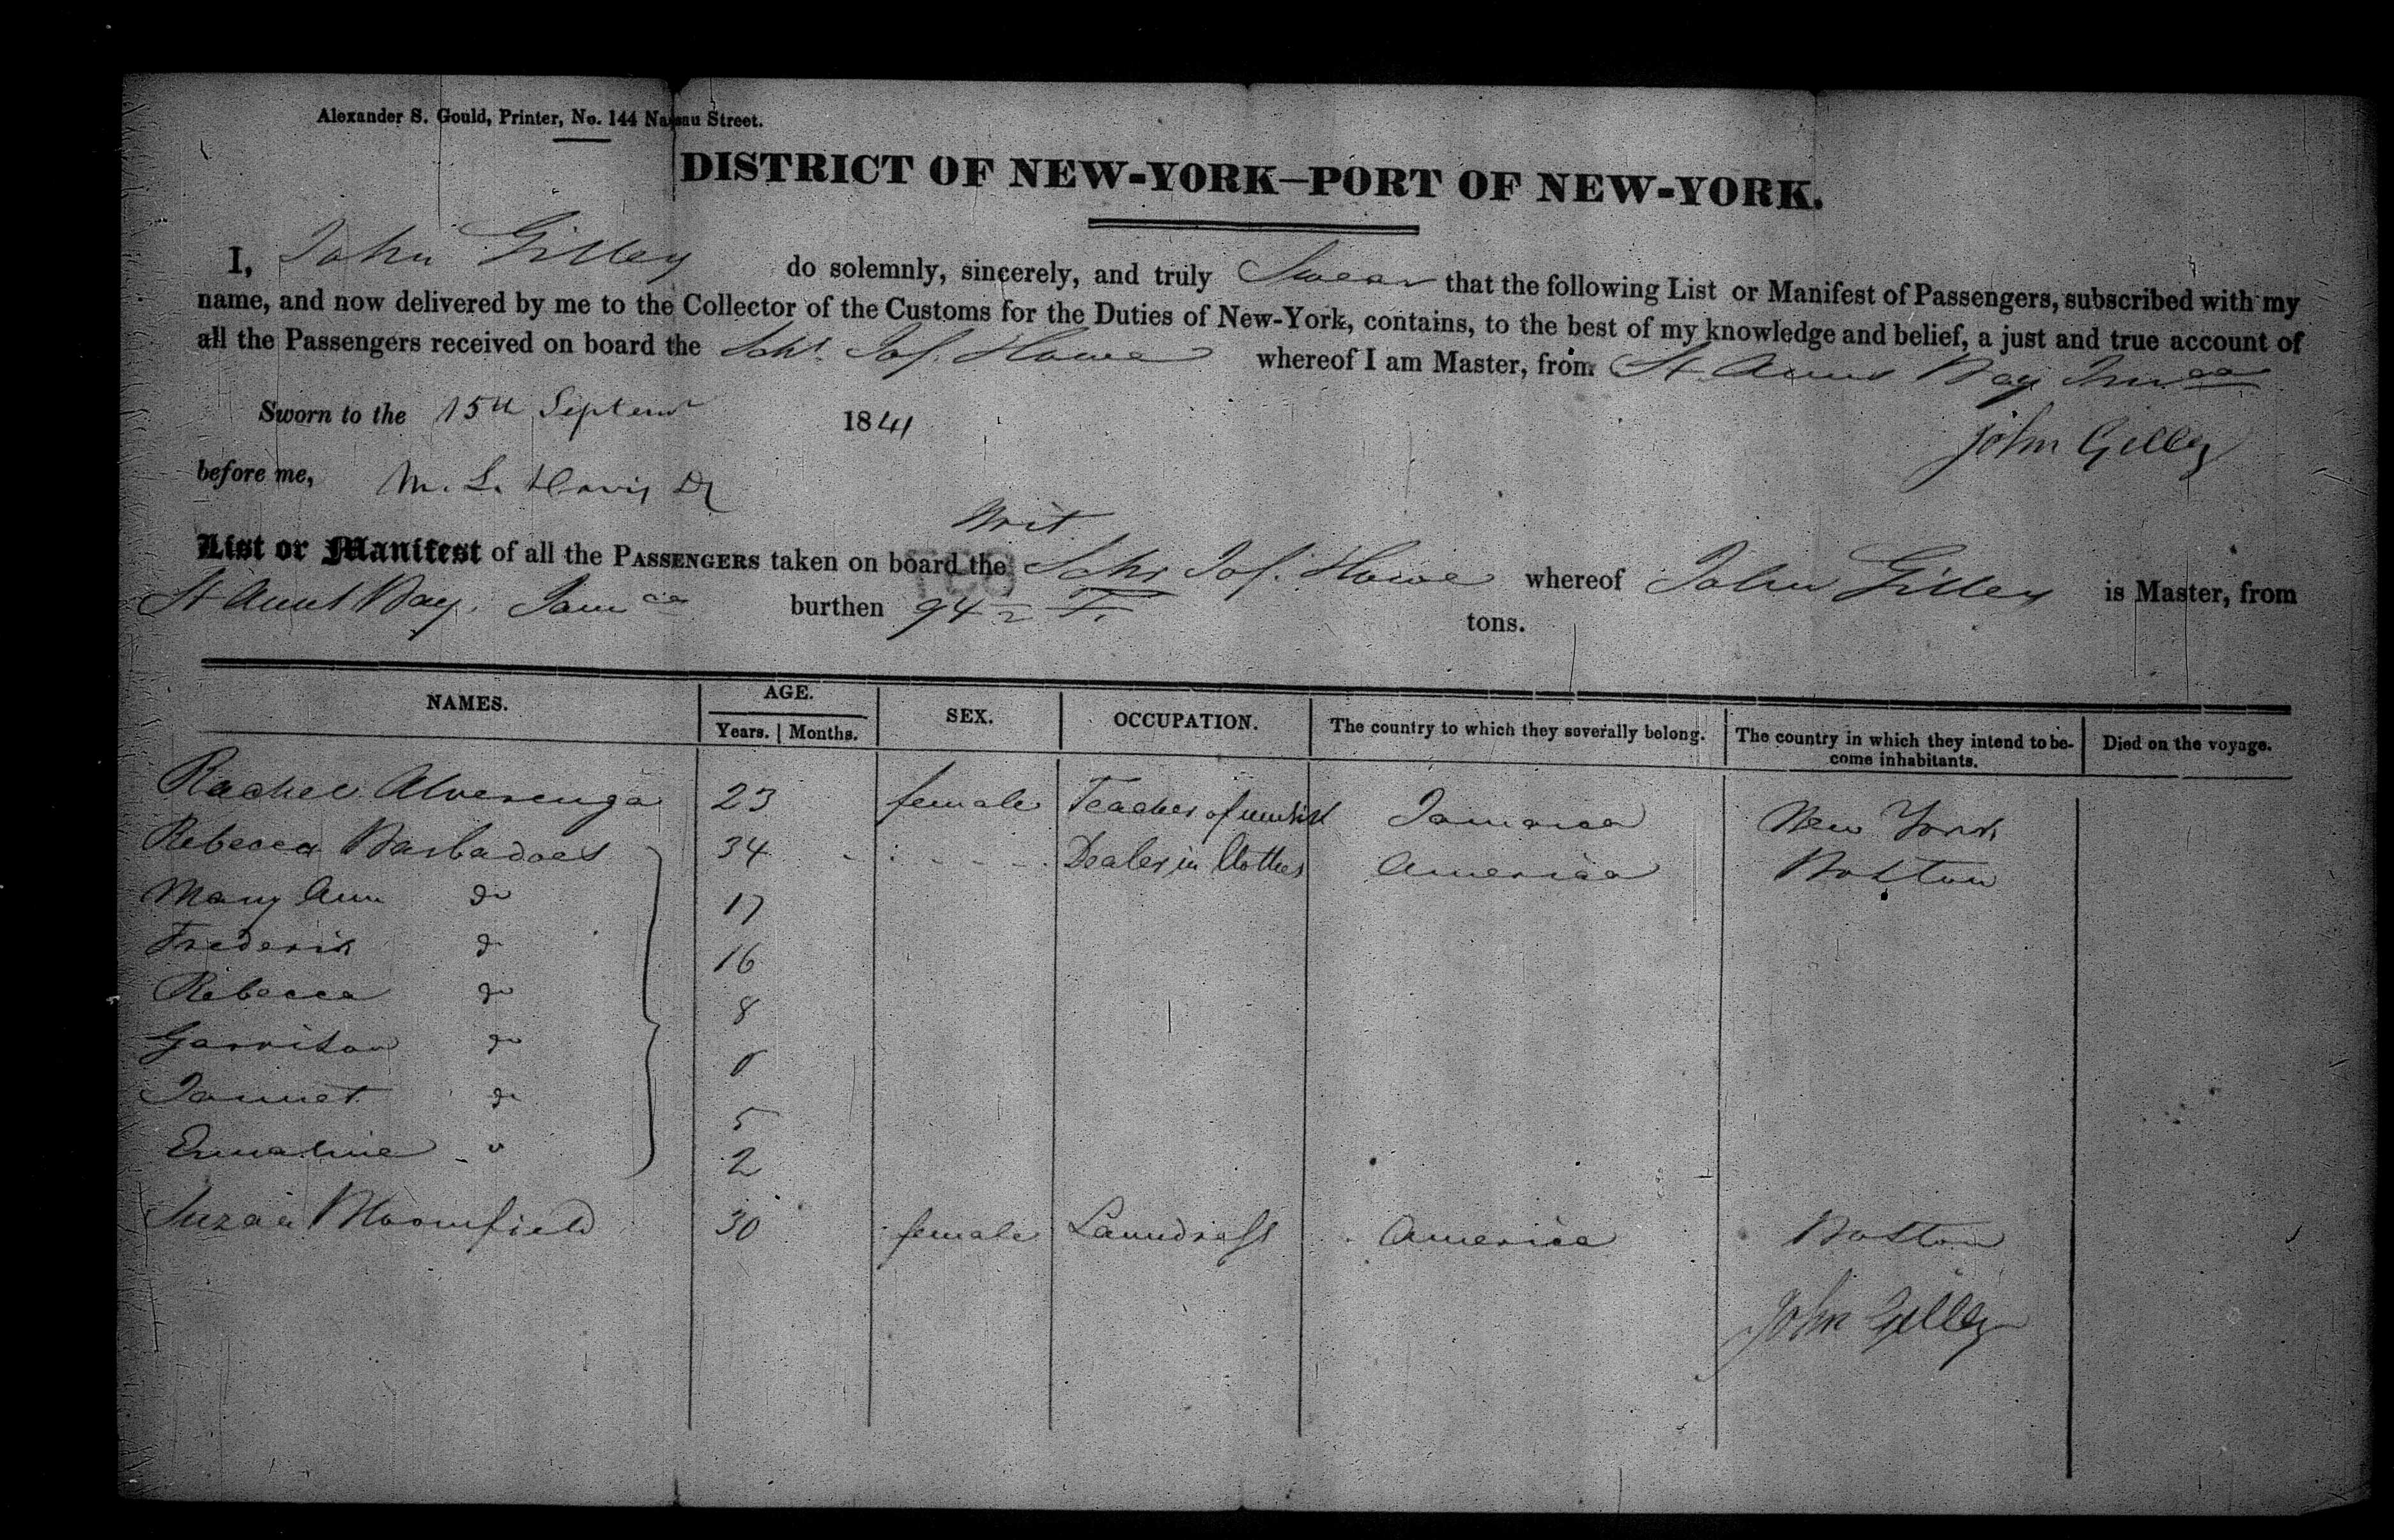 Alexander S. Gould, Printer, No. 144 Nassau Street.
DISTRICT OF NEW-YORK—PORT OF NEW-YORK.
I, John Gilley do solemnly, sincerely, and truly Swear that the following List or Manifest of Passengers, subscribed with my
name, and now delivered by me to the Collector of the Customs for the Duties of New-York, contains, to the best of my knowledge and belief, a just and true account of
all the Passengers received on board the Schr. Jos. Howe whereof I am Master, from St Anns Bay
Sworn to the 15th Septemr 1841
John Gilley
before me, M. L. Davis
Brit.
List or Manifest of all the PASSENGERS taken on board the Schr Jos. Howe whereof John Gilley is Master, from
St Anns Bay. Jamca burthen 94 T. tons.
NAMES. AGE. SEX. OCCUPATION. The country to which they soverally belong. The country in which they intend to be- Died on the voyage.
Years. Months. come inhabitants.
Rachel Alverenga 23 female Teacher of Jamaica New York
Rebecca Barbadoes 34 Dealer in Clothes America Boston
Mary Ann do 17
Frederik do 16
Rebecca do 8
Garrison do
Jannet do 5
Emaline " 2
Suzan Bloomfield 30 female Laundress America Boston
John Gilley